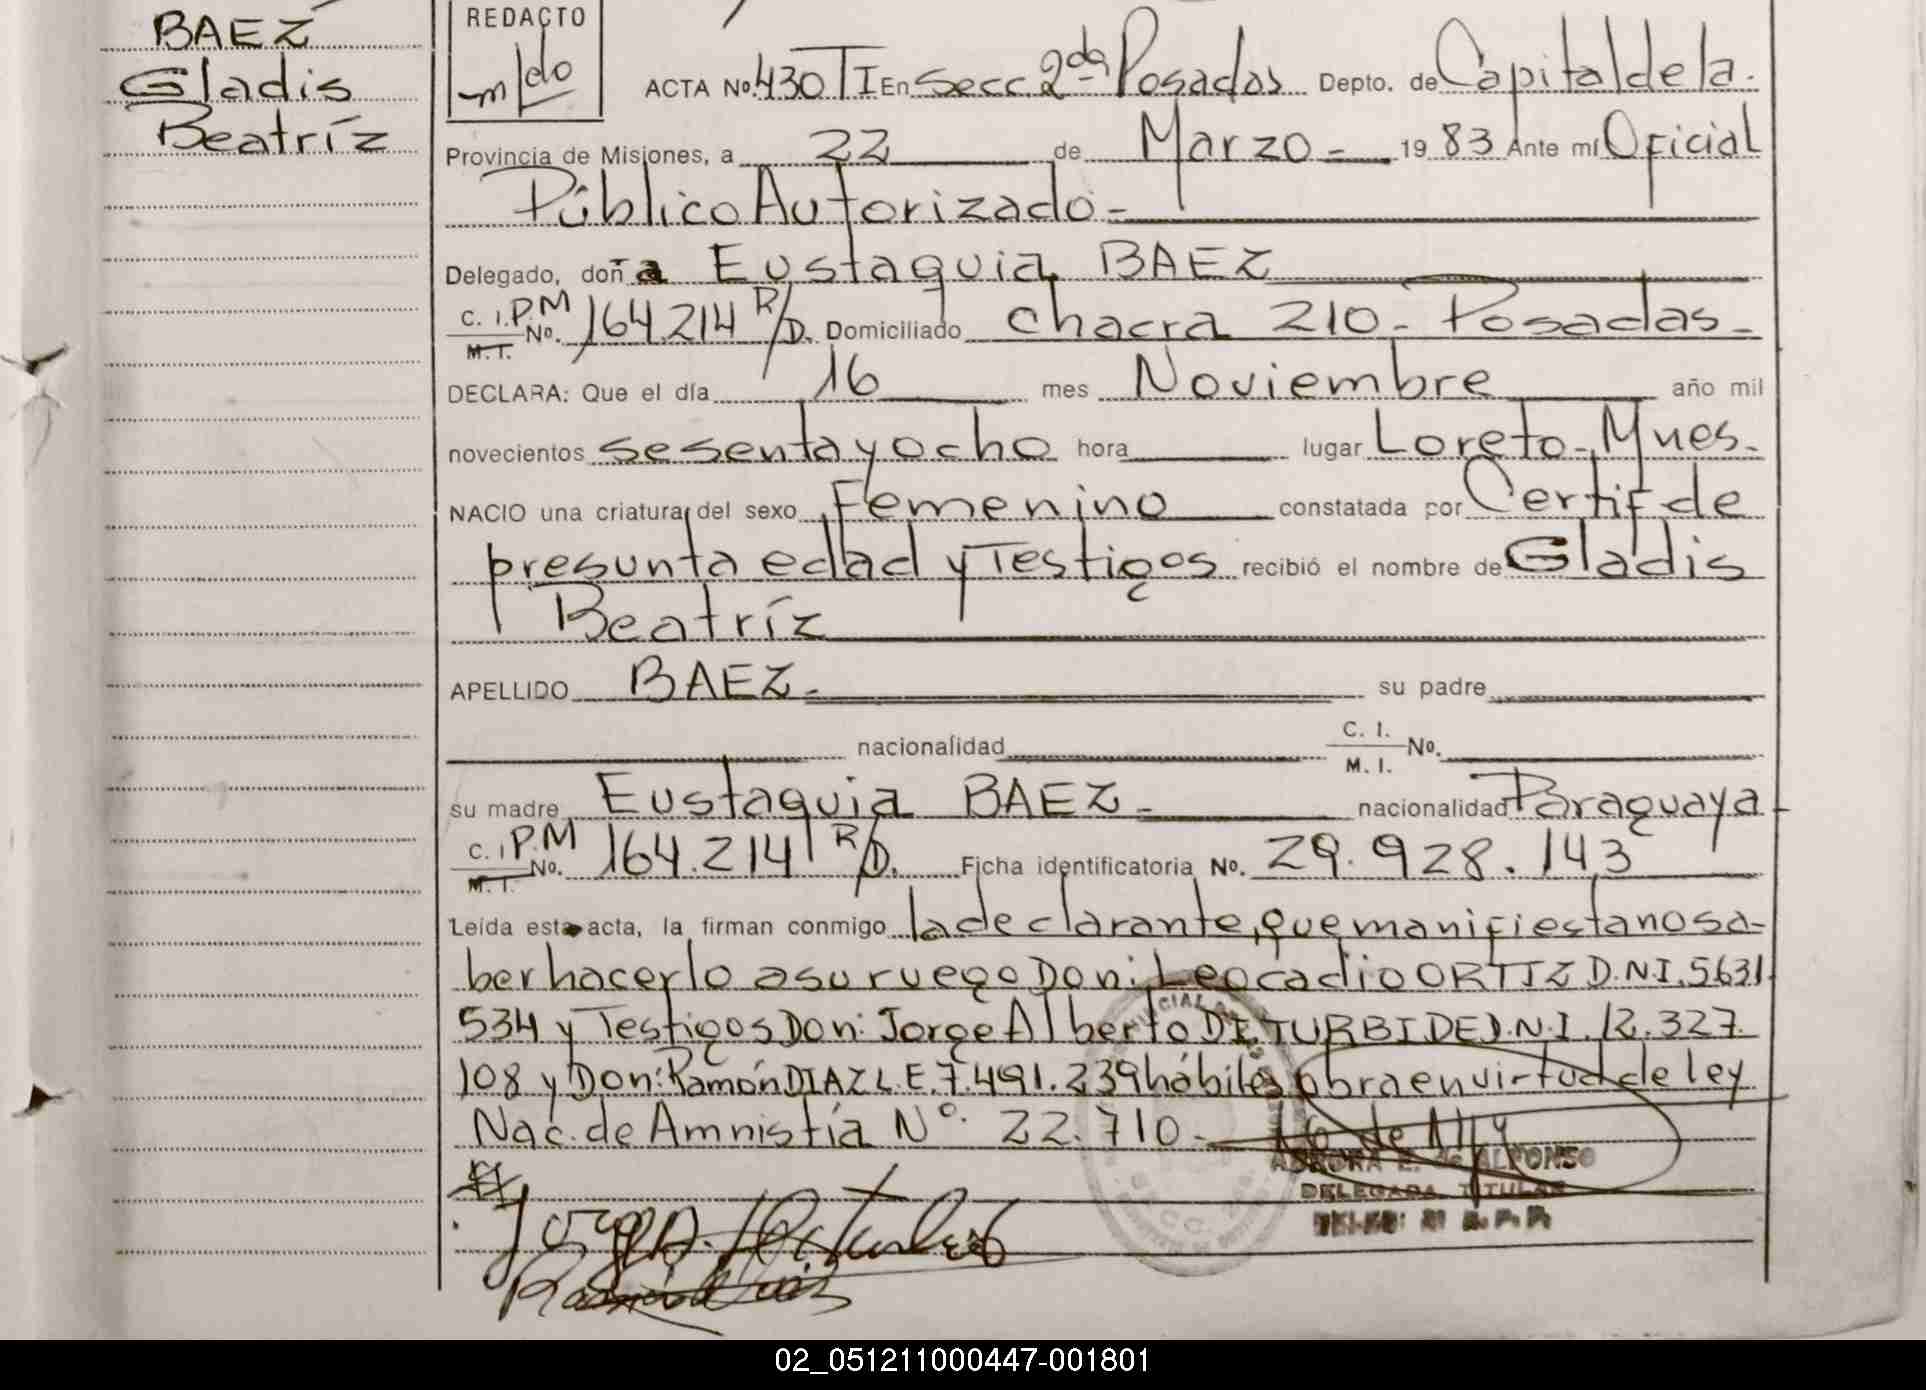 BAEZ
Gladis
Beatríz
REDACTO
ACTA No. 430 TI En Secc 2da Posadas Depto. de Capital de la
Provincia de Misiones, a 22 de Marzo - 1983 Ante mí Oficial
Público Autorizado -
Delegado, doña Eustaquia BAEZ
C. I. P.M
M. I. No. 164.214 R/D. Domiciliado chacra 210 - Posadas -
DECLARA: Que el día 16 mes Noviembre año mil
novecientos sesenta y ocho hora lugar Loreto - Mnes.
NACIO una criatura del sexo Femenino constatada por Certif de
presunta edad y Testigos recibió el nombre de Gladis
Beatríz
APELLIDO BAEZ - su padre
nacionalidad C. I. M. I. No.
su madre Eustaquia BAEZ - nacionalidad Paraguaya
C. I. P.M
M. I. No. 164.214 R/D. Ficha identificatoria No. 29.928.143
Leída esta acta, la firman conmigo la declarante, que manifiesta no sa-
ber hacerlo a su ruego Don: Leocadio ORTIZ D.N.I. 5631
534 y Testigos Don: Jorge Alberto DE ITURBIDE D.N.I. 12.327
108 y Don: Ramón DIAZ L.E. 7.491.239 hábiles obra en virtud de ley
Nac. de Amnistía N°. 22.710 -
AURORA E. de ALFONSO
DELEGADA TITULAR
02_051211000447-001801